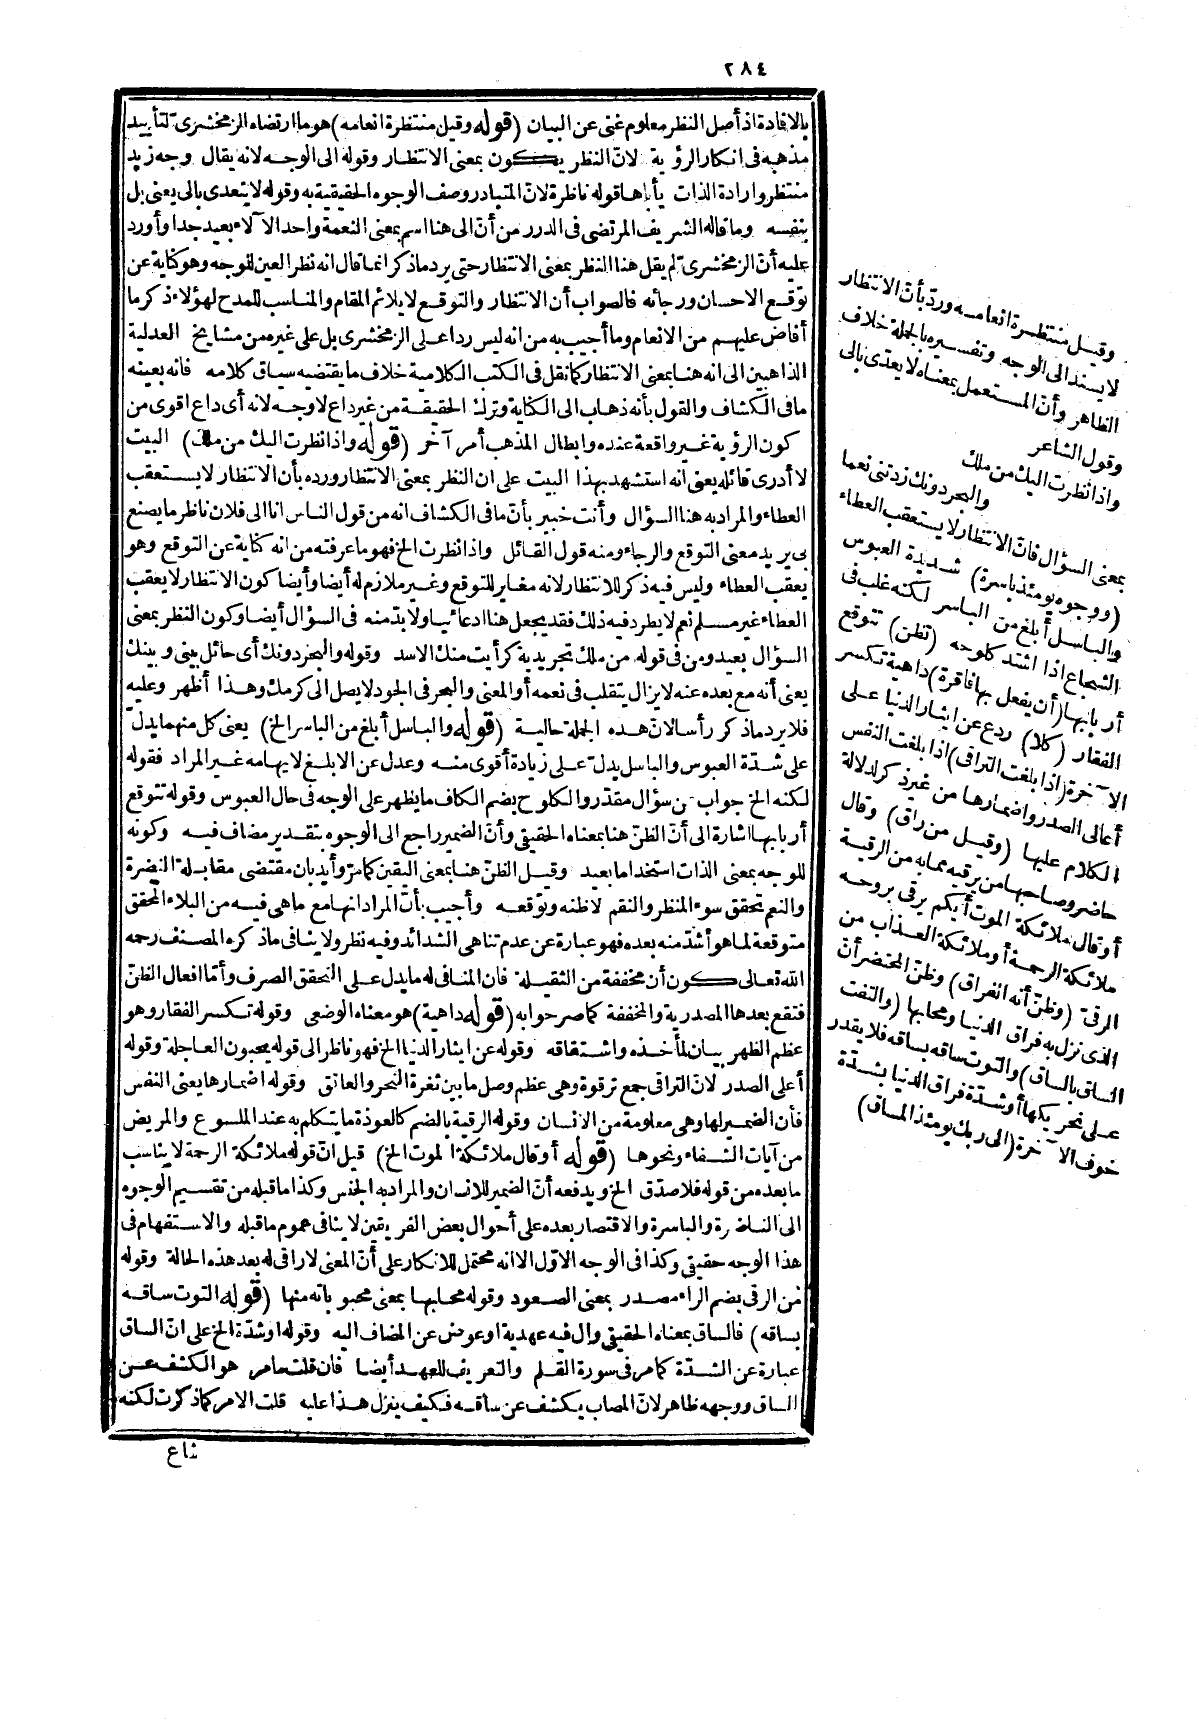 ٢٨٤
بالافادة اذ أصل النظر معلوم غنى عن البيان (قوله وقيل منتظرة انعامه) هو ما ارتضاه الزمخشرى لتأييد
مذهبه فى انكار الرؤية لانّ النظر يكون بمعنى الانتظار وقوله الى الوجه لانه يقال وجه زيد
منتظر وارادة الذات يأباها قوله ناظرة لانّ المتبادر وصف الوجوه الحقيقية به وقوله لا يتعدى بالى يعنى بل
بنفسه وما قاله الشريف المرتضى فى الدرر من أن الى هنا اسم بمعنى النعمة واحد الآلاء بعيد جدا وأورد
عليه أنّ الزمخشرىّ لم يقل هنا النظر بمعنى الانتظار حتى يرد ما ذكر انما قال انه نظر العين للوجه وهو كناية عن
توقع الاحسان ورجائه فالصواب أن الانتظار والتوقع لا يلائم المقام والمناسب للمدح لهؤلاء ذكر ما
أفاض عليهم من الانعام وما أجيب به من انه ليس ردا على الزمخشرى بل على غيره من مشايخ العدلية
الذاهبين الى انه هنا بمعنى الانتظار كما نقل فى الكتب الكلامية خلاف ما يقتضيه سياق كلامه فانه بعينه
ما فى الكشاف والقول بأنه ذهاب الى الكناية وترك الحقيقة من غير داع لا وجه لانه أى داع اقوى من
كون الرؤية غير واقعة عنده وابطال المذهب أمر آخر (قوله واذا نظرت اليك من ملك) البيت
لا أدرى قائله يعنى انه استشهد بهذا البيت على ان النظر بمعنى الانتظار ورده بأن الانتظار لا يستعقب
العطاء والمراد به هنا السؤال وأنت خبير بأنّ ما فى الكشاف انه من قول الناس انا الى فلان ناظر ما يصنع
بى يريد معنى التوقع والرجاء ومنه قول القائل واذا نظرت الخ فهو ما عرفته من انه كناية عن التوقع وهو
يعقب العطاء وليس فيه ذكر للانتظار لانه مغاير للتوقع وغير ملازم له أيضا وأيضا كون الانتظار لا يعقب
العطاء غير مسلم نعم لا يطرد فيه ذلك فقد يجعل هنا ادعائيا ولابد منه فى السؤال أيضا وكون النظر بمعنى
السؤال بعيد ومن فى قوله من ملك تجريدية كرأيت منك الاسد وقوله والبحر دونك أى حائل بينى وبينك
يعنى أنه مع بعده عنه لا يزال يتقلب فى نعمه أو المعنى والبحر فى الجود لا يصل الى كرمك وهذا أظهر وعليه
فلا يرد ما ذكر رأسا لانّ هذه الجملة حالية (قوله والباسل أبلغ من الباسر الخ) يعنى كل منهما يدلّ
على شدّة العبوس والباسل يدلّ على زيادة أقوى منه وعدل عن الابلغ لايهامه غير المراد فقوله
لكنه الخ جواب عن سؤال مقدّر والكلوح بضم الكاف ما يظهر على الوجه فى حال العبوس وقوله تتوقع
أربابها اشارة الى أنّ الظنّ هنا بمعناه الحقيقى وأنّ الضمير راجع الى الوجوه بتقدير مضاف فيه وكونه
للوجه بمعنى الذات استخداما بعيد وقيل الظنّ هنا بمعنى اليقين كما مرّ وأيد بان مقتضى مقابلة النضرة
والنعم تحقق سوء المنظر والنقم لا ظنه وتوقعه وأجيب بأنّ المراد انها مع ما هى فيه من البلاء المحقق
متوقعة لما هو أشدّ منه بعده فهو عبارة عن عدم تناهى الشدائد وفيه نظر ولا ينافى ما ذكره المصنف رحمه
الله تعالى كون أن مخففة من الثقيلة فان المنافى له ما يدل على التحقق الصرف وأمّا افعال الظنّ
فتقع بعدها المصدرية والمخففة كما صرّحوا به (قوله داهية) هو معناه الوضعى وقوله تكسر الفقار وهو
عظم الظهر بيان لمأخذه واشتقاقه وقوله عن ايثار الدنيا الخ فهو ناظر الى قوله يحبون العاجلة وقوله
أعلى الصدر لانّ التراقى جمع ترقوة وهى عظم وصل ما بين ثغرة النحر والعاتق وقوله اضمارها يعنى النفس
فأن الضمير لها وهى معلومة من الانسان وقوله الرقية بالضم كالعوذة ما يتكلم به عند الملسوع والمريض
من آيات الشفاء ونحوها (قوله أو قال ملائكة الموت الخ) قيل انّ قوله ملائكة الرحمة لا يناسب
ما بعده من قوله فلا صدّق الخ ويدفعه أنّ الضمير للانسان والمراد به الجنس وكذا ما قبله من تقسيم الوجوه
الى الناضرة والباسرة والاقتصار بعده على أحوال بعض الفريقين لا ينافى عموم ما قبله والاستفهام فى
هذا الوجه حقيقى وكذا فى الوجه الاوّل الا انه محتمل للانكار على أنّ المعنى لا راقى له بعد هذه الحالة وقوله
من الرقى بضم الراء مصدر بمعنى الصعود وقوله محابها بمعنى محبوباته منها (قوله التوت ساقه
بساقه) فالساق بمعناه الحقيقى وال فيه عهدية او عوض عن المضاف اليه وقوله او شدّة الخ على انّ الساق
عبارة عن الشدّة كما مر فى سورة القلم والتعريف للعهد أيضا فان قلت ما مر هو الكشف عن
الساق ووجهه ظاهر لانّ المصاب يكشف عن ساقه فكيف ينزل هذا عليه قلت الامر كما ذكرت لكنه
شاع
وقيل منتظرة انعامه وردّ بأنّ الانتظار
لا يسند الى الوجه وتفسيره بالجملة خلاف
الظاهر وأنّ المستعمل بمعناه لا يعدى بالى
وقول الشاعر
واذا نظرت اليك من ملك
والبحر دونك زدتنى نعما
بمعنى السؤال فانّ الانتظار لا يستعقب العطاء
(ووجوه يومئذ باسرة) شديدة العبوس
والباسل أبلغ من الباسر لكنه غلب فى
الشجاع اذا اشتد كلوحه (تظن) تتوقع
أربابها (أن يفعل بها فاقرة) داهية تكسر
الفقار (كلا) ردع عن ايثار الدنيا على
الآخرة (اذا بلغت التراقى) اذا بلغت النفس
أعالى الصدر واضمارها من غير ذكر لدلالة
الكلام عليها (وقيل من راق) وقال
حاضر وصاحبها من يرقيه مما به من الرقية
أو قال ملائكة الموت أيكم يرقى بروحه
ملائكة الرحمة أو ملائكة العذاب من
الرقىّ (وظن أنه الفراق) وظنّ المحتضر أنّ
الذى نزل به فراق الدنيا ومحابها (والتفت
الساق بالساق) والتوت ساقه بساقه فلا يقدر
على تحريكها أو شدّة فراق الدنيا بشدّة
خوف الآخرة (الى ربك يومئذ المساق)